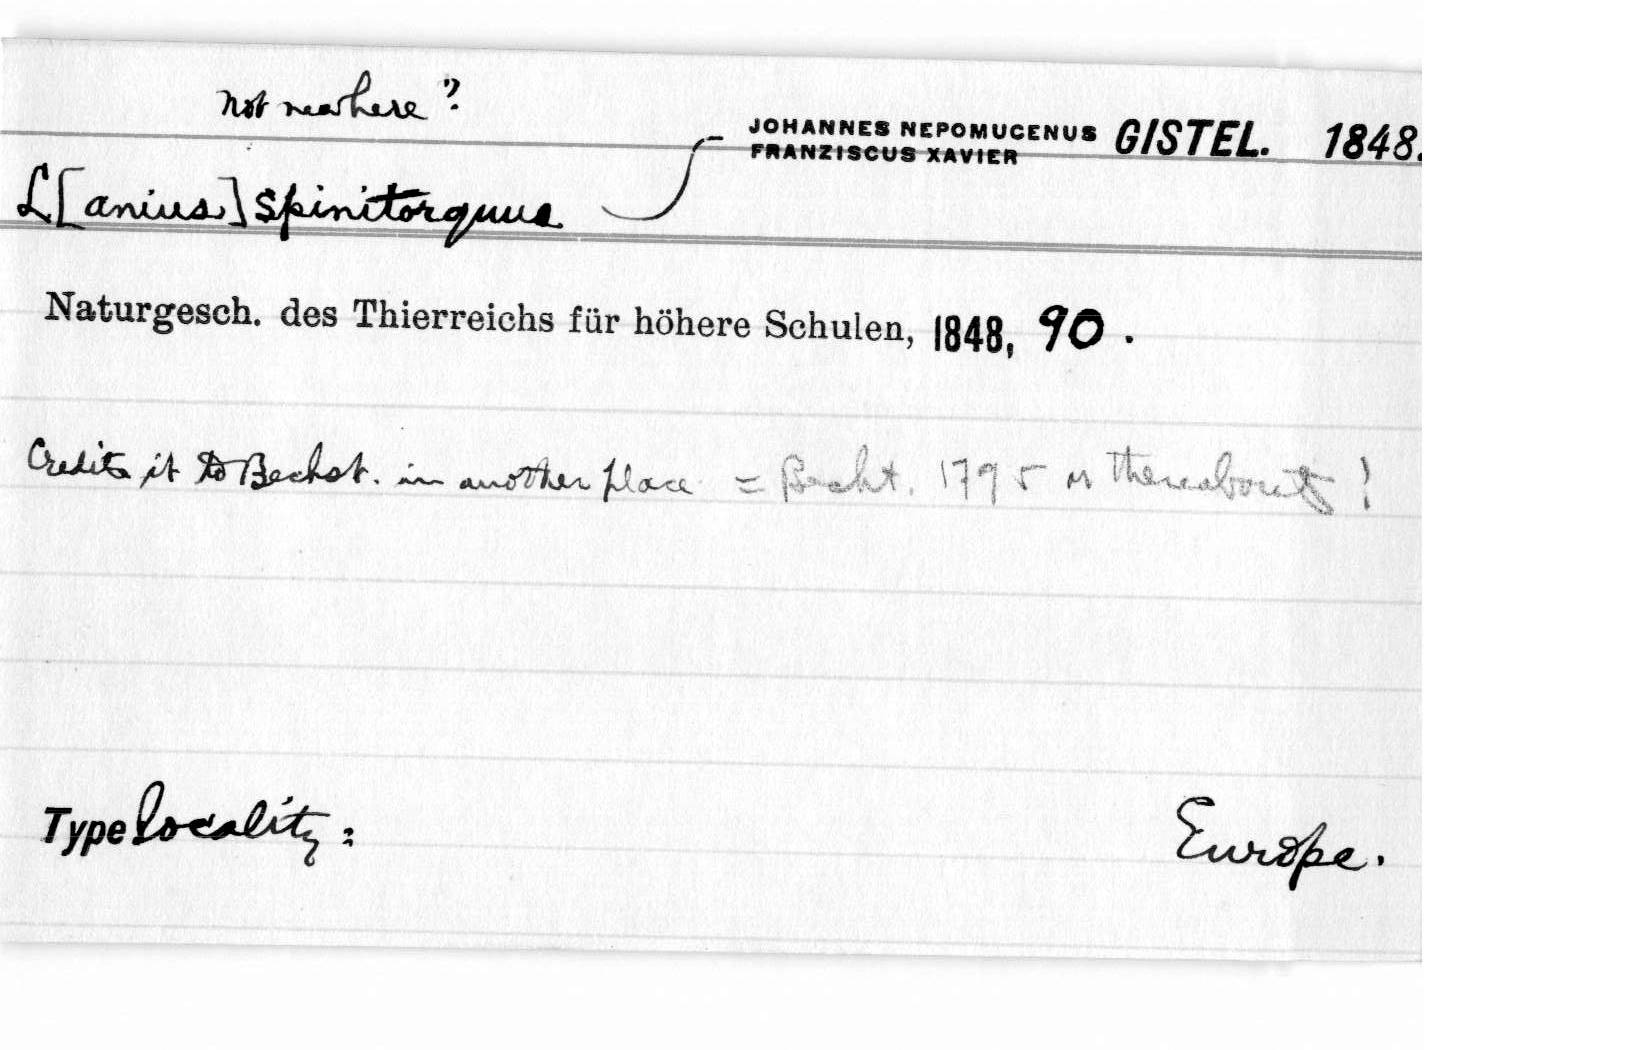 Not new here?
JOHANNES NEPOMUCENUS
FRANZISCUS XAVIER
GISTEL. 1848.
L[anius] spinitorquus
Naturgesch. des Thierreichs für höhere Schulen, 1848, 90.
Credits it to Bechst. in another place = Becht. 1795 or thereabouts!
Type locality: Europe.